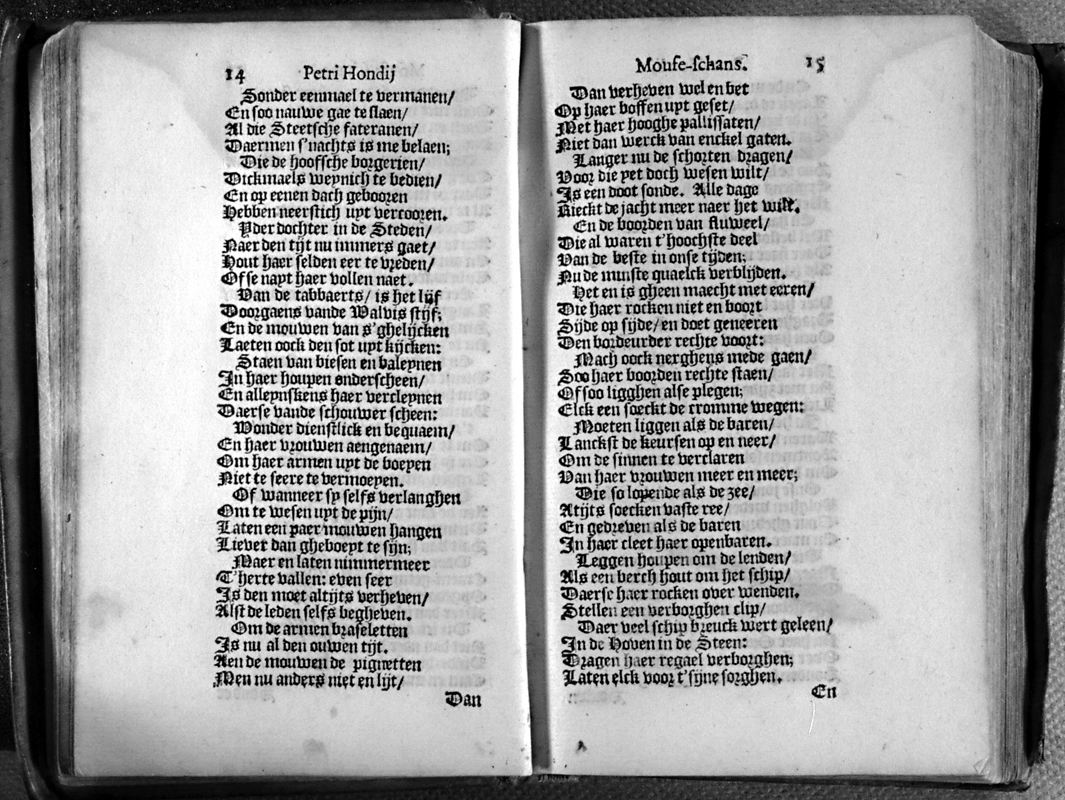 14 Petri Hondij
Sonder eenmael te vermanen/
En soo nauwe gae te slaen/
Al die Steetsche fateranen/
Daermen s'nachts is me belaen;
Die de hoofsche borgerien/
Dickmaels weynich te bedien/
En op eenen dach gebooren
Hebben neerstich uyt vercooren.
Yder dochter in de Steden/
Naer den tijt nu immers gaet/
Hout haer selden eer te vreden/
Ofse nayt haer vollen naet.
Van de tabbaerts/ is het lijf
Doorgaens vande Walvis stijf;
En de mouwen van s'ghelijcken
Laeten oock den sot uyt kijcken:
Staen van biesen en baleynen
In haer houpen onderscheen/
En alleynskens haer vercleynen
Daerse vande schouwer scheen:
Wonder dienstlick en bequaem/
En haer vrouwen aengenaem/
Om haer armen uyt de boeyen
Niet te seere te vermoeyen.
Of wanneer sy selfs verlanghen
Om te wesen uyt de pijn/
Laten een paer mouwen hangen
Liever dan gheboeyt te sijn;
Maer en laten nimmermeer
T'herte vallen: even seer
Is den moet altijts verheven/
Alst de leden selfs begheven.
Om de armen braseletten
Is nu al den ouwen tijt.
Aen de mouwen de pignetten
Men nu anders niet en lijt/
Dan
Mouse-schans. 15
Dan verheven wel en bet
Op haer boffen uyt geset/
Met haer hooghe pallissaten/
Niet dan werck van enckel gaten.
Langer nu de schorten dragen/
Voor die yet doch wesen wilt/
Is een doot sonde. Alle dage
Kieckt de jacht meer naer het wilt.
En de boorden van fluweel/
Die al waren t'hoochste deel
Van de beste in onse tijden;
Nu de minste quaelck verblijden.
Het en is gheen maecht met eeren/
Die haer rocken niet en boort
Sijde op sijde/ en doet geneeren
Den bordeurder rechte voort:
Mach oock nerghens mede gaen/
Soo haer boorden rechte staen/
Of soo ligghen alse plegen;
Elck een soeckt de cromme wegen:
Moeten liggen als de baren/
Lanckst de keursen op en neer/
Om de sinnen te verclaren
Van haer vrouwen meer en meer;
Die so lopende als de zee/
Atijts soecken vaste ree/
En gedreven als de baren
In haer cleet haer openbaren.
Leggen houpen om de lenden/
Als een berch hout om het schip/
Daerse haer rocken over wenden.
Stellen een verborghen clip/
Daer veel schip breuck wert geleen/
In de Hoven in de Steen:
Dragen haer regael verborghen;
Laten elck voor t'sijne sorghen.
En